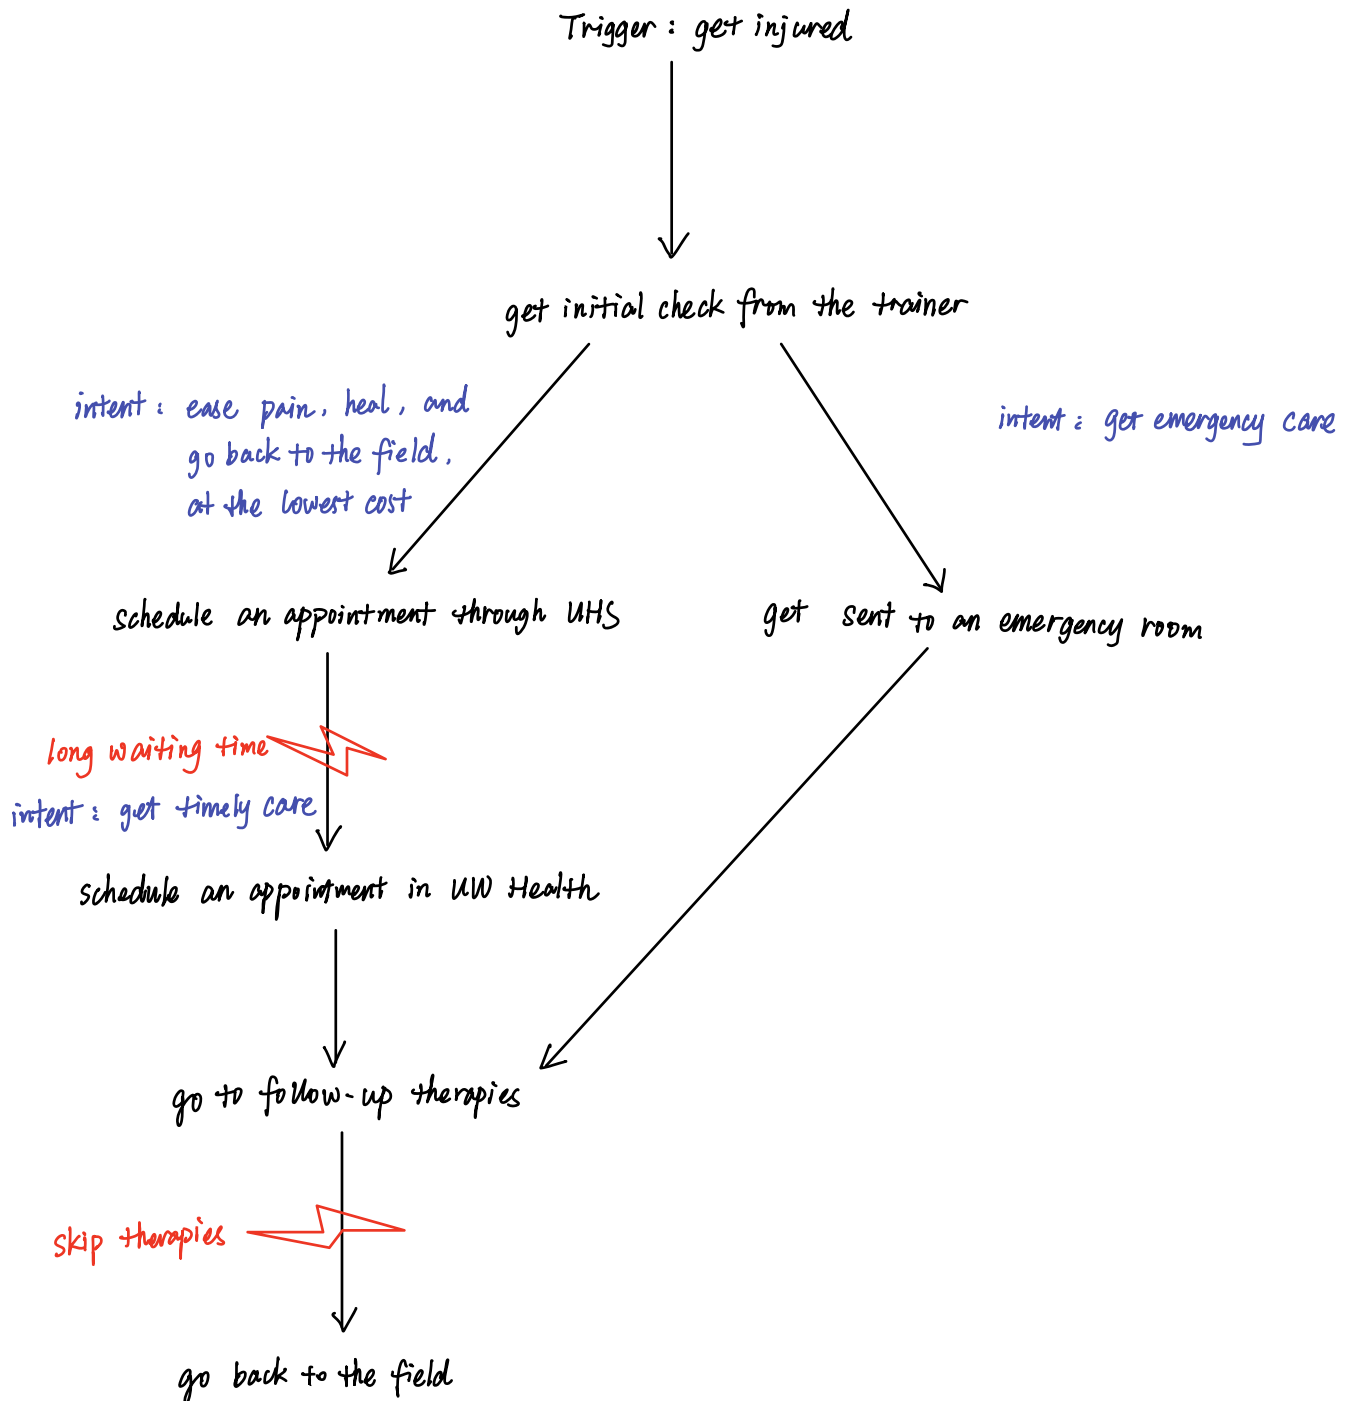 Trigger : get injured
get initial check from the trainer
intent : ease pain, heal, and
go back to the field,
at the lowest cost
intent : get emergency care
schedule an appointment through UHS
get sent to an emergency room
long waiting time
intent : get timely care
schedule an appointment in UW Health
go to follow-up therapies
skip therapies
go back to the field